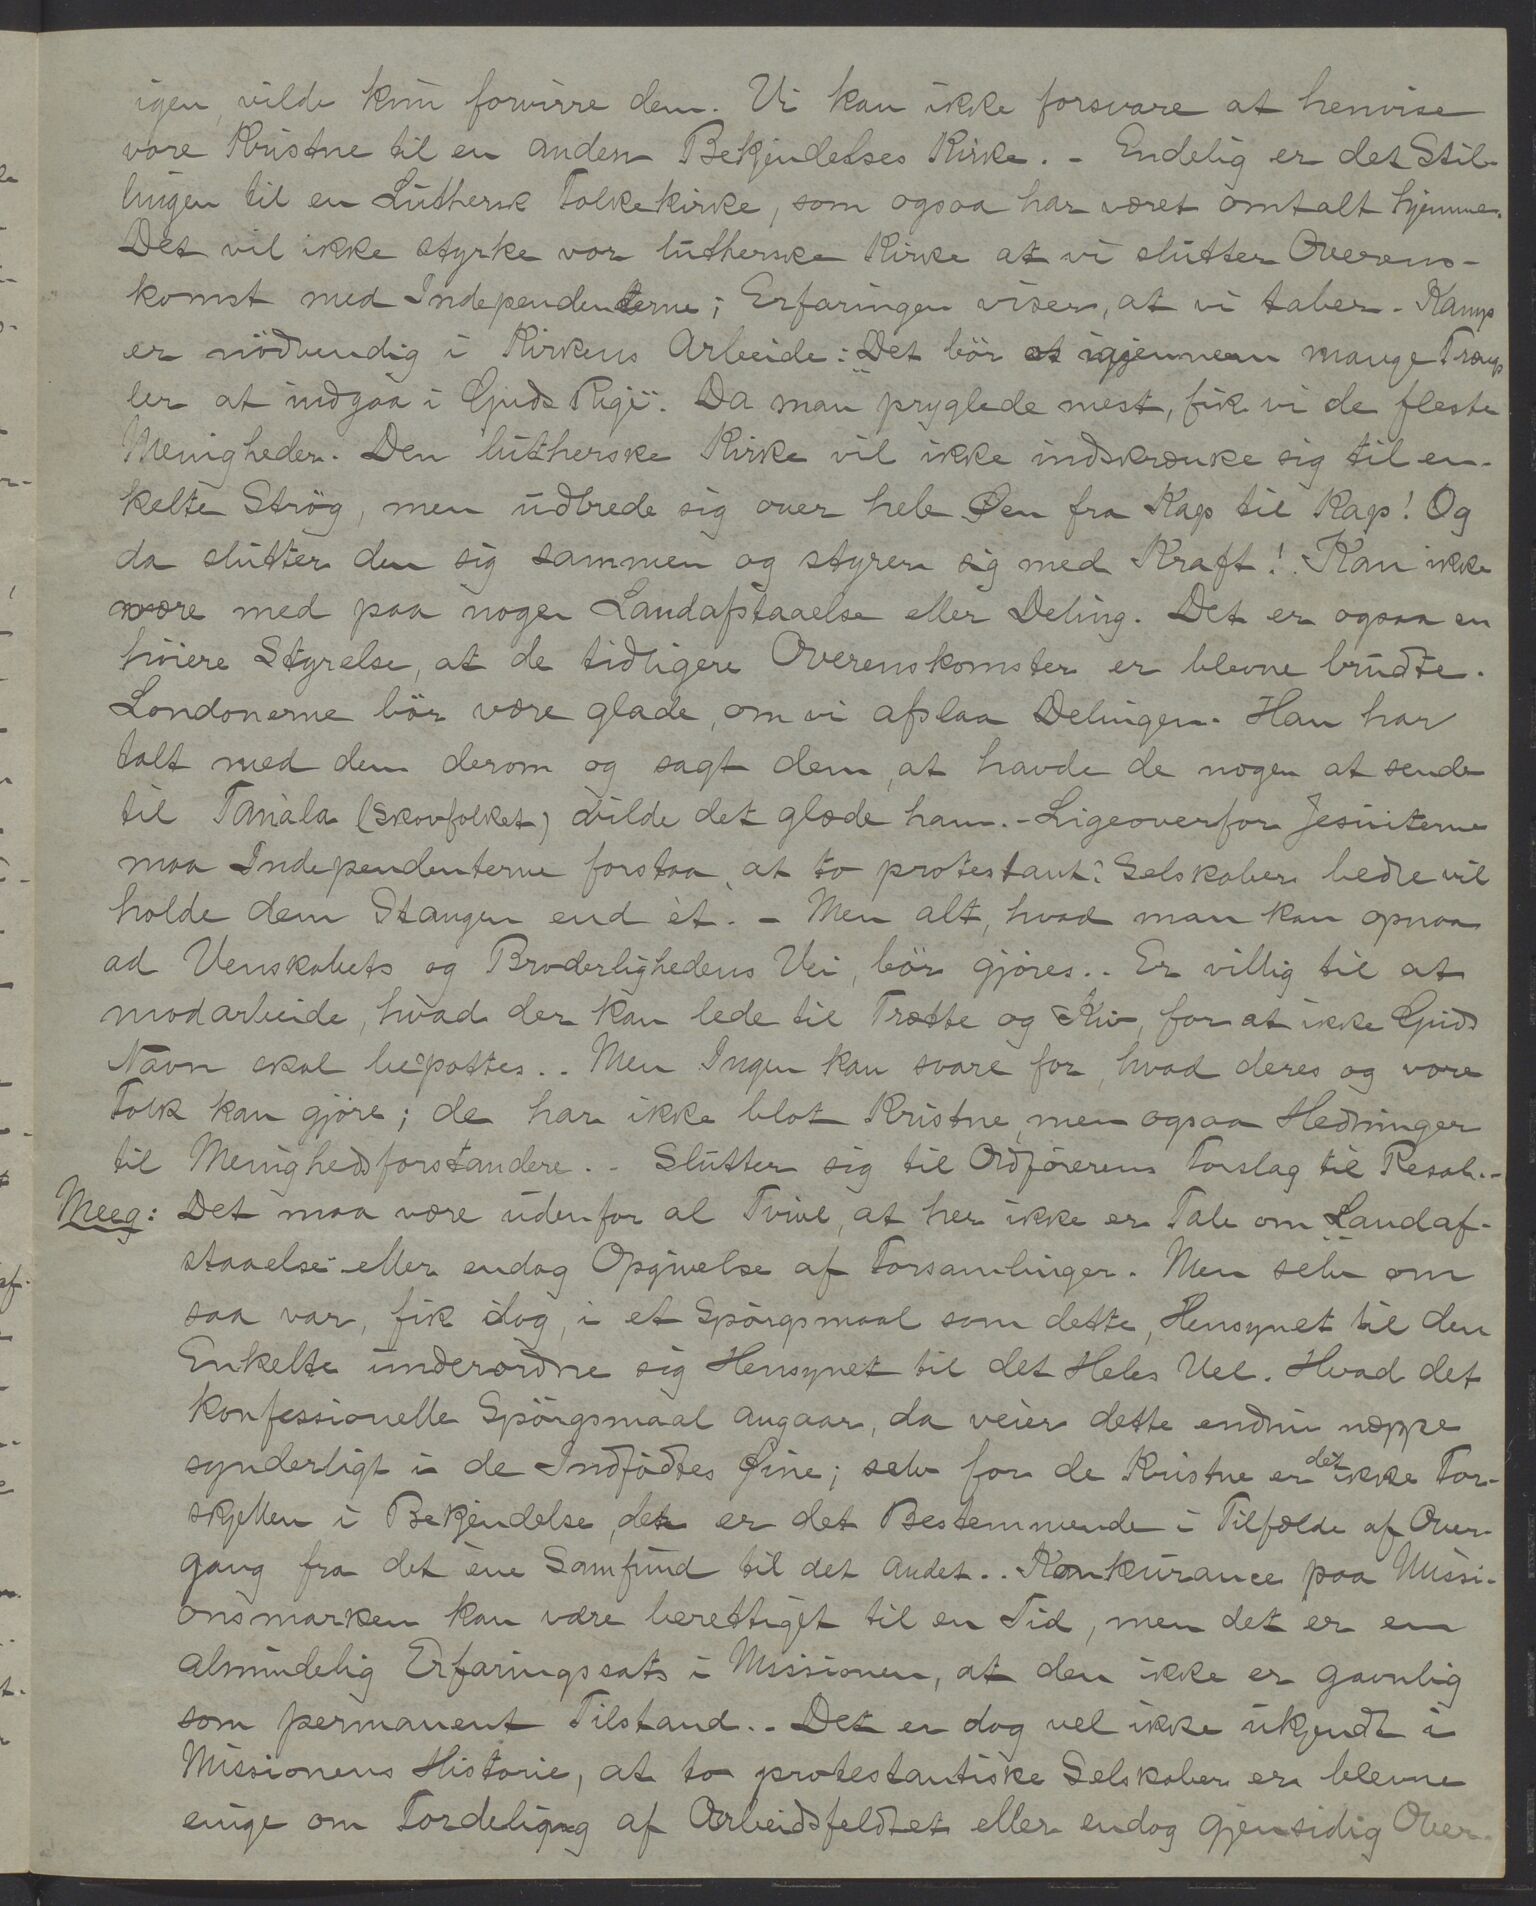 igen, vilde kun forvirre dem. Vi kan ikke forsvare at henvise
vore Kristne til en anden Bekjendelses Kirke. - Endelig er det Stil-
lingen til en Luthersk Folkekirke, som ogsaa har været omtalt hjemme.
Det vil ikke styrke vor lutherske Kirke at vi slutter Overens-
komst med Independenterne; Erfaringen viser, at vi taber. Kamp
er nödvendig i Kirkens Arbeide: "Det bör os igjennem mange Træng
ler at indgaa i Guds Rige". Da man pryglede mest, fik vi de fleste
Menigheder. Den lutherske Kirke vil ikke indskrænke sig til en-
kelte Strög, men udbrede sig over hele Øen fra Kap til Kap! Og
da slutter den sig sammen og styrer sig med Kraft! Kan ikke
være med paa nogen Landafstaaelse eller Deling. Det er ogsaa en
höiere Styrelse, at de tidligere Overenskomster er blevne brudte.
Londonerne bör være glade, om vi afslaa Delingen. Han har
talt med dem derom og sagt dem, at havde de nogen at sende
til Tanala (Skovfolket) vilde det glæde ham. - Ligeoverfor Jesuiterne
maa Independenterne forstaa, at to protestant: Selskaber bedre vil
holde dem Stangen end ét. - Men alt, hvad man kan opnaa
ad Venskabets og Broderlighedens Vei, bör gjöres.. Er villig til at
modarbeide, hvad der kan lede til Trætte og Kiv, for at ikke Guds
Navn skal bespottes.. Men Ingen kan svare for, hvad deres og vore
Folk kan gjöre; de har ikke blot Kristne, men ogsaa Hedninger
til Menighedsforstandere. - Slutter sig til Ordförerens Forslag til Resol. -
Meeg: Det maa være udenfor al Tvivl, at her ikke er Tale om "Landaf-
staaelse" eller endog Opgivelse af Forsamlinger. Men selv om
saa var, fik dog, i et Spörgsmaal som dette, Hensynet til den
Enkelte underordne sig Hensynet til det Heles Vel. Hvad det
konfessionelle Spörgsmaal angaar, da veier dette endnu neppe
synderligt i de Indfödtes Øine; selv for de Kristne er det ikke For-
skjellen i Bekjendelse, der er det Bestemmende i Tilfælde af Over-
gang fra det ene Samfund til det andet.. Konkurance paa Missi-
onsmarken kan være berettiget til en Tid, men det er en
almindelig Erfaringssats i Missionen, at den ikke er gavnlig
som permanent Tilstand.. Det er dog vel ikke ukjendt i
Missionens Historie, at to protestantiske Selskaber er blevne
enige om Fordeling af Arbeidsfeldtet eller endog gjensidig Over-